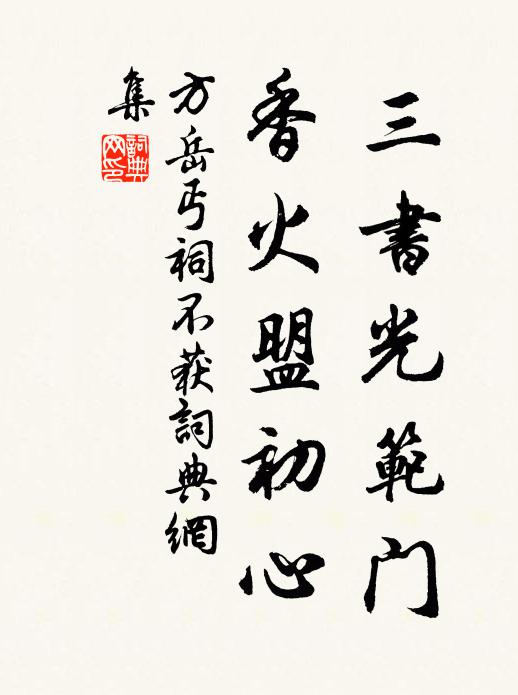 三書光範门
香火盟初心
方岳丐祠不获詞典網
集
詞典網印